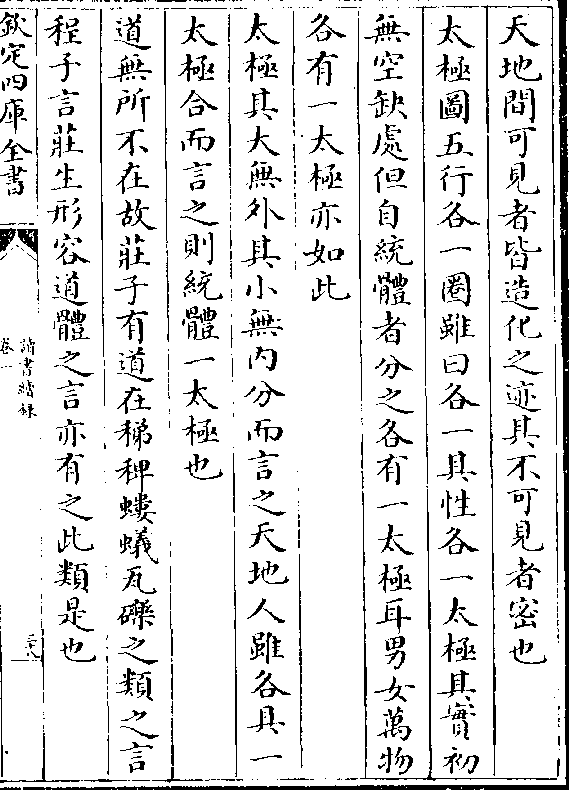 天地間可見者皆造化之迹其不可見者密也
太極圖五行各一圈雖曰各一其性各一太極其實初
無空缺處但自統體者分之各有一太極耳男女萬物
各有一太極亦如此
太極其大無外其小無內分而言之天地人雖各具一
太極合而言之則統體一太極也
道無所不在故莊子有道在稊稗螻蟻瓦礫之類之言
程子言莊生形容道體之言亦有之此類是也
欽定四庫全書
讀書續錄
卷一
三十八